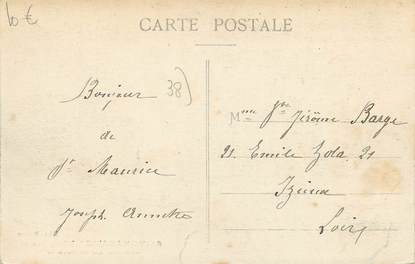 10 €
CARTE POSTALE
Bonjour
38)
de
St Maurice
Joseph
Mme Jérôme Barge
21 Emile Zola 21
Loire